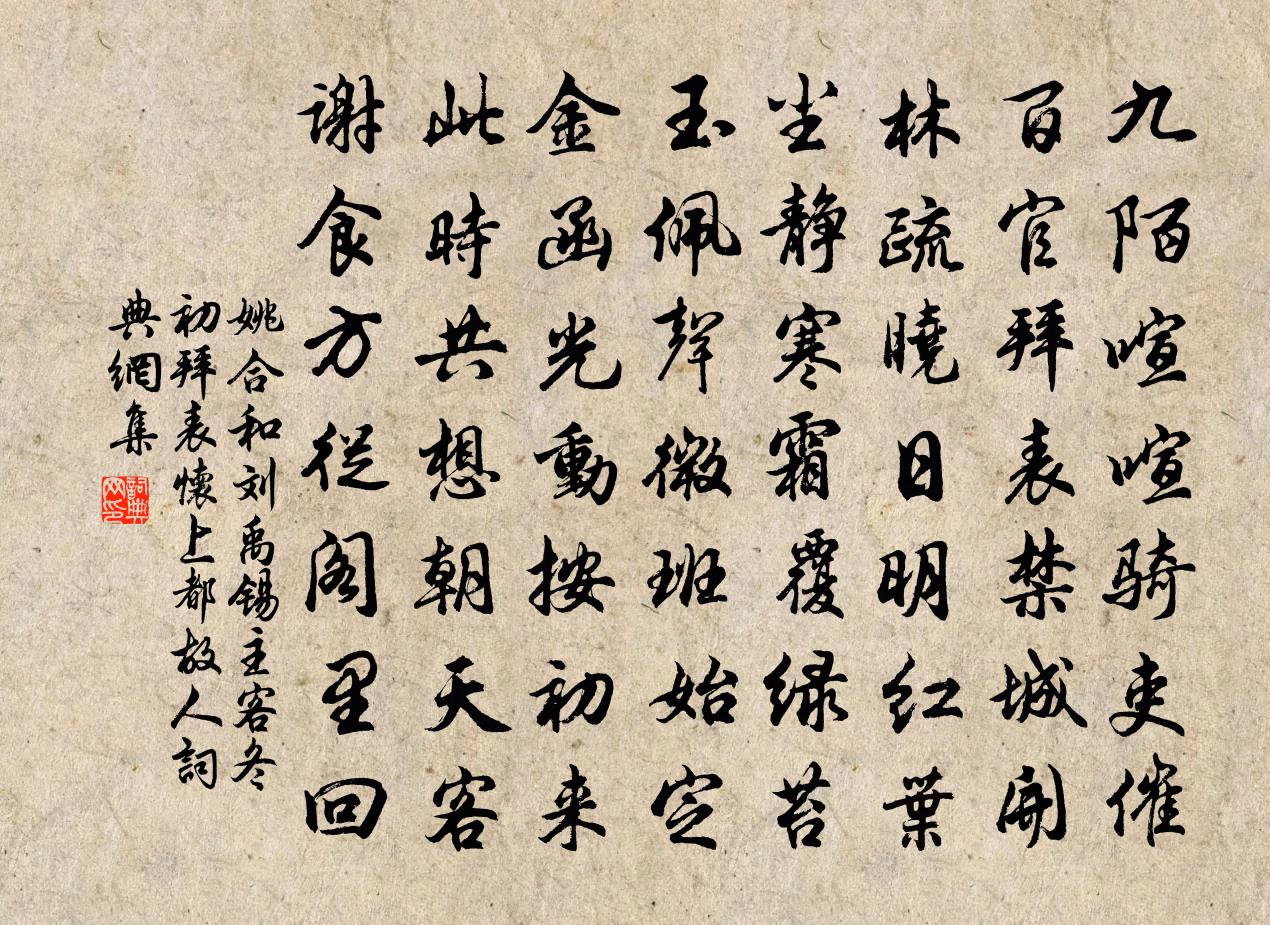 九陌喧喧骑吏催
百官拜表禁城開
林疏曉日明红葉
尘静寒霜覆绿苔
玉佩聲微班始定
金函光動按初来
此時共想朝天客
谢食方從阁里回
姚合和刘禹锡主客冬
初拜表懷上都故人詞
典網集
詞典网印